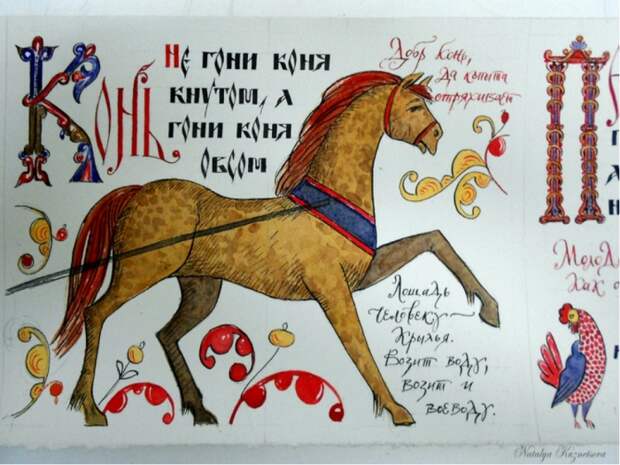 Конь
Не гони коня
кнутом, а
гони коня
овсом
Добр конь,
да копыта
отряхивает
Лошадь
человеку –
крылья.
Возит воду,
возит и
воеводу.
П
Natalya Kuznetsova